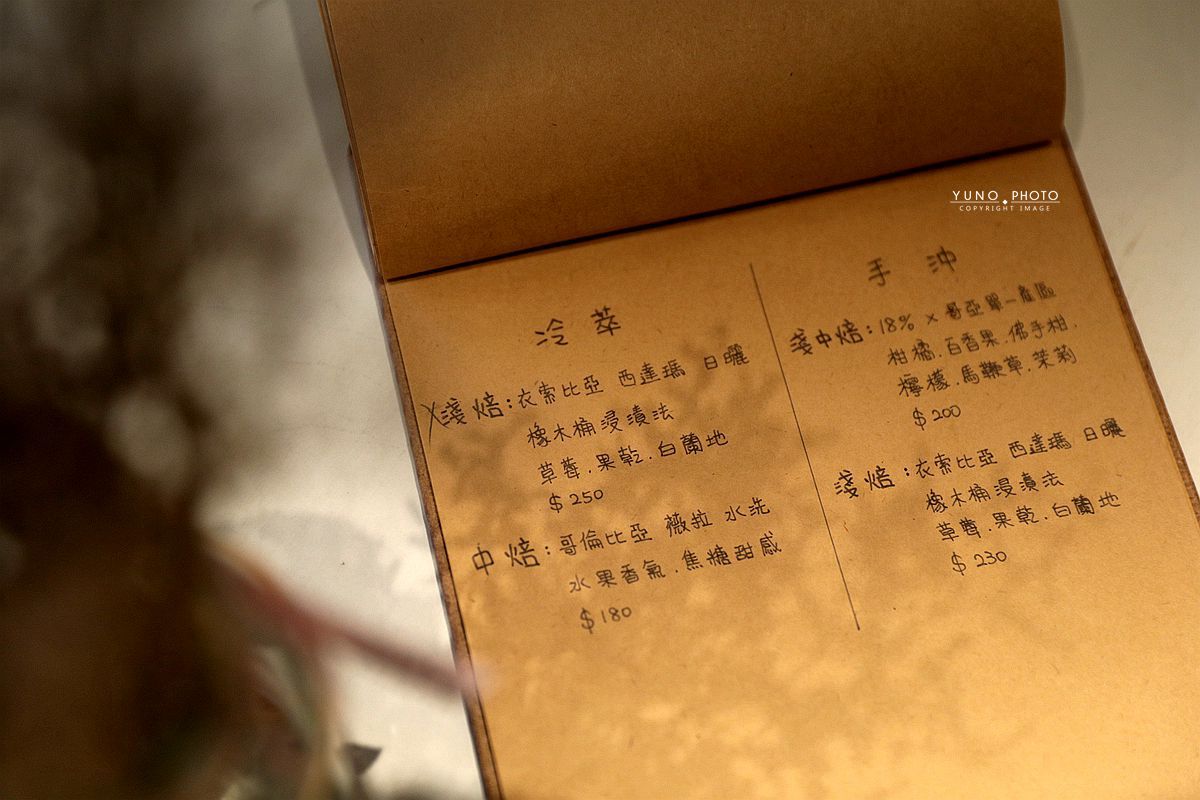 冷萃
淺焙：衣索比亞 西達瑪 日曬
橡木桶浸漬法
草莓．果乾．白蘭地
$250
中焙：哥倫比亞 薇拉 水洗
水果香氣．焦糖甜感
$180
手沖
淺中焙：18% × 哥亞單一產區
柑橘．百香果．佛手柑．
檸檬．馬鞭草．茉莉
$200
淺焙：衣索比亞 西達瑪 日曬
橡木桶浸漬法
草莓．果乾．白蘭地
$230
YUNO PHOTO
COPYRIGHT IMAGE